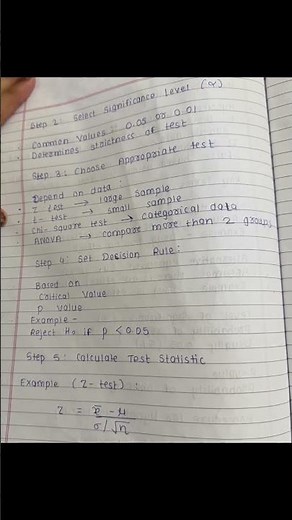 Step 2: Select Significance Level (α)
Common Values: 0.05 or 0.01
Determines strictness of test
Step 3: Choose Appropriate test
Depend on data:
Z - test → large sample
t - test → small sample
Chi-square test → categorical data
ANOVA → compare more than 2 groups
Step 4: Set Decision Rule:
Based on
Critical Value
p value
Example -
Reject H₀ if p < 0.05
Step 5: Calculate Test Statistic
Example (Z-test):
Z = x̄ - μ
σ/√n